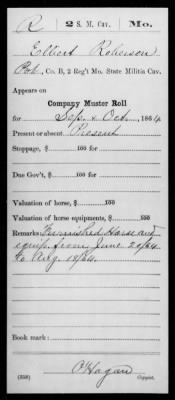 R 2 S. M. Cav. Mo.
Elbert Roberson
Pvt., Co. B, 2 Reg't Mo. State Militia Cav.
Appears on
Company Muster Roll
for Sep. & Oct., 1864
Present or absent Present
Stoppage, $ 100 for
Due Gov't, $ 100 for
Valuation of horse, $ 100
Valuation of horse equipments, $ 100
Remarks: Furnished Horse and
equip. from June 20/64
to Aug. 18/64.
Book mark:
O'Hagan
(358) Copyist.